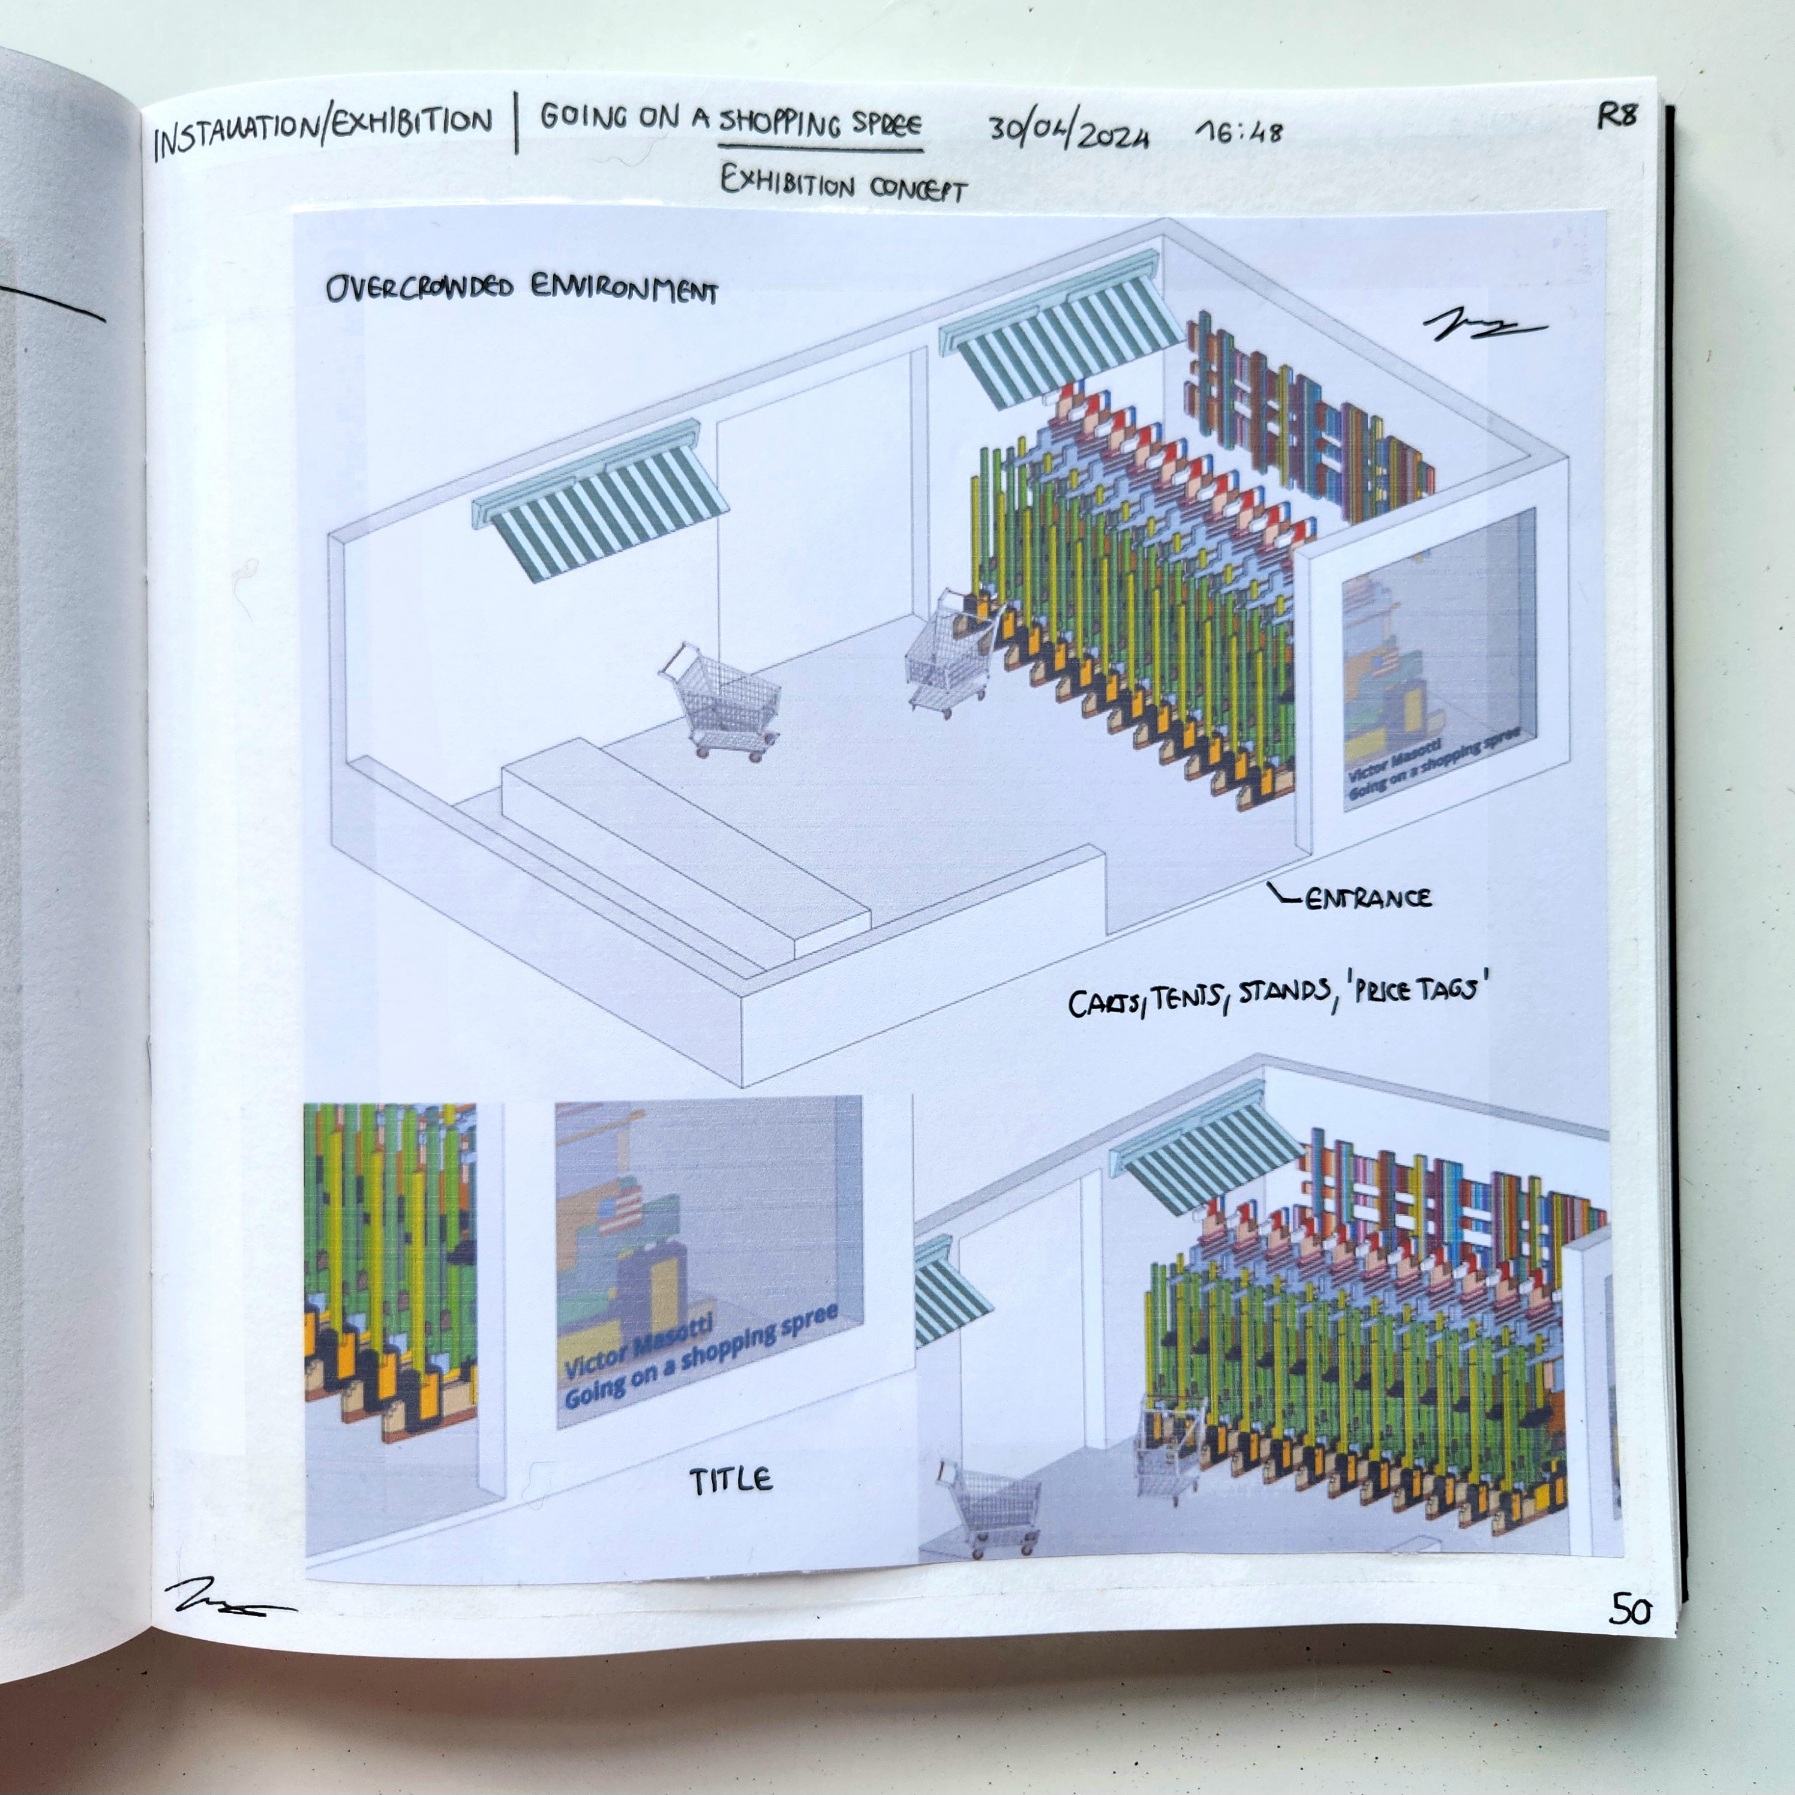 INSTALLATION/EXHIBITION | GOING ON A SHOPPING SPREE 30/04/2024 16:48 R8
EXHIBITION CONCEPT
OVERCROWDED ENVIRONMENT
Victor Masotti
Going on a shopping spree
ENTRANCE
CARTS, TENTS, STANDS, 'PRICE TAGS'
Victor Masotti
Going on a shopping spree
TITLE
50